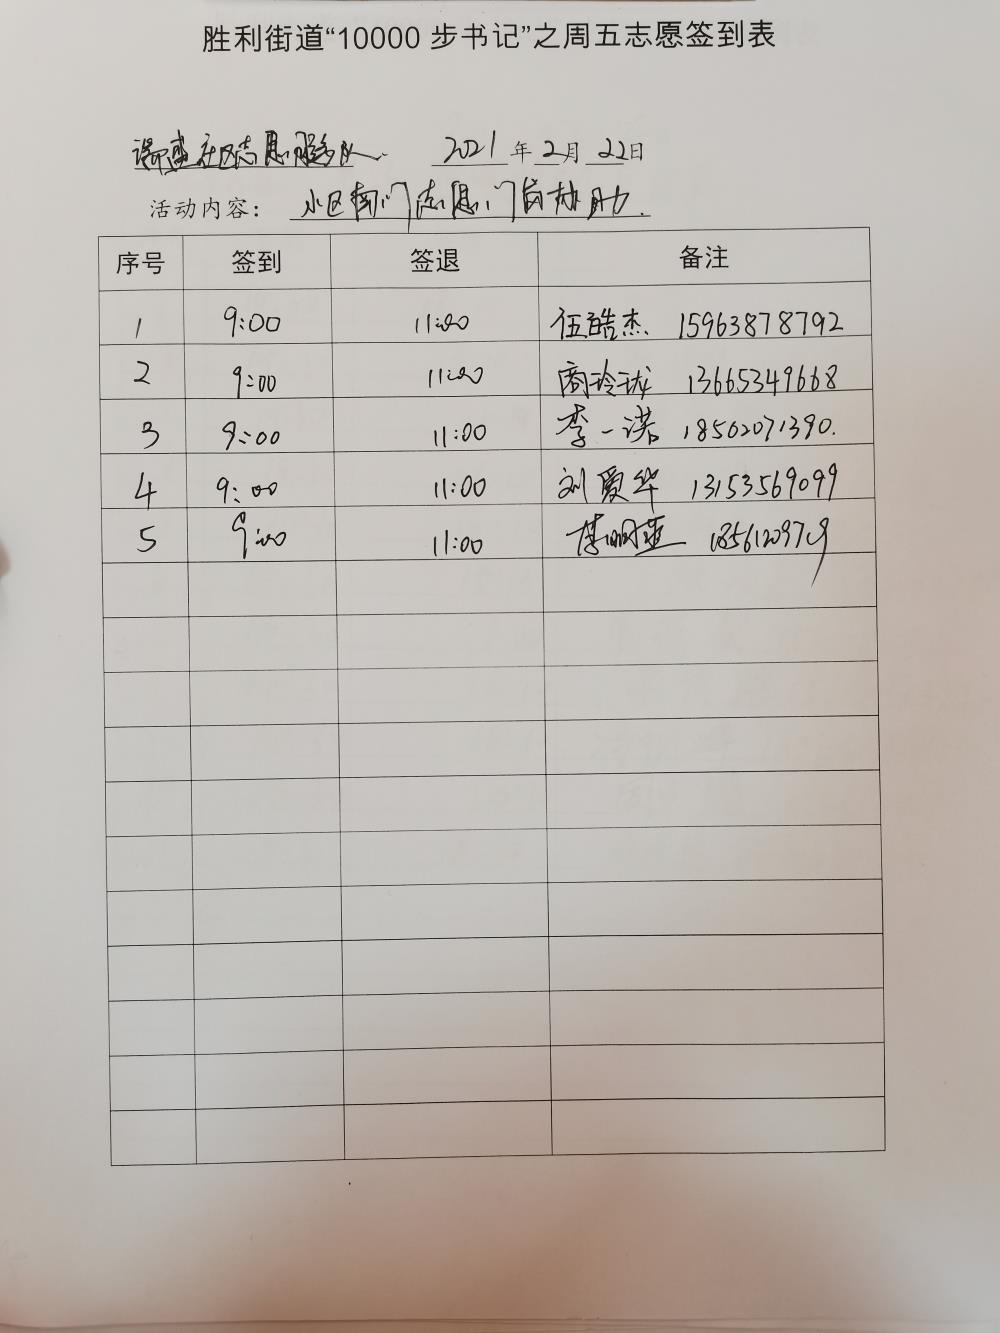 胜利街道“10000 步书记”之周五志愿签到表
社区志愿服务队 2021 年 2 月 22 日
活动内容： 小区南门志愿门岗协助
序号 签到 签退 备注
1 9:00 11:00 伍皓杰 15963878792
2 9:00 11:00 商玲珑 13665349668
3 9:00 11:00 李一诺 18502071390.
4 9:00 11:00 刘爱华 13153569099
5 9:00 11:00